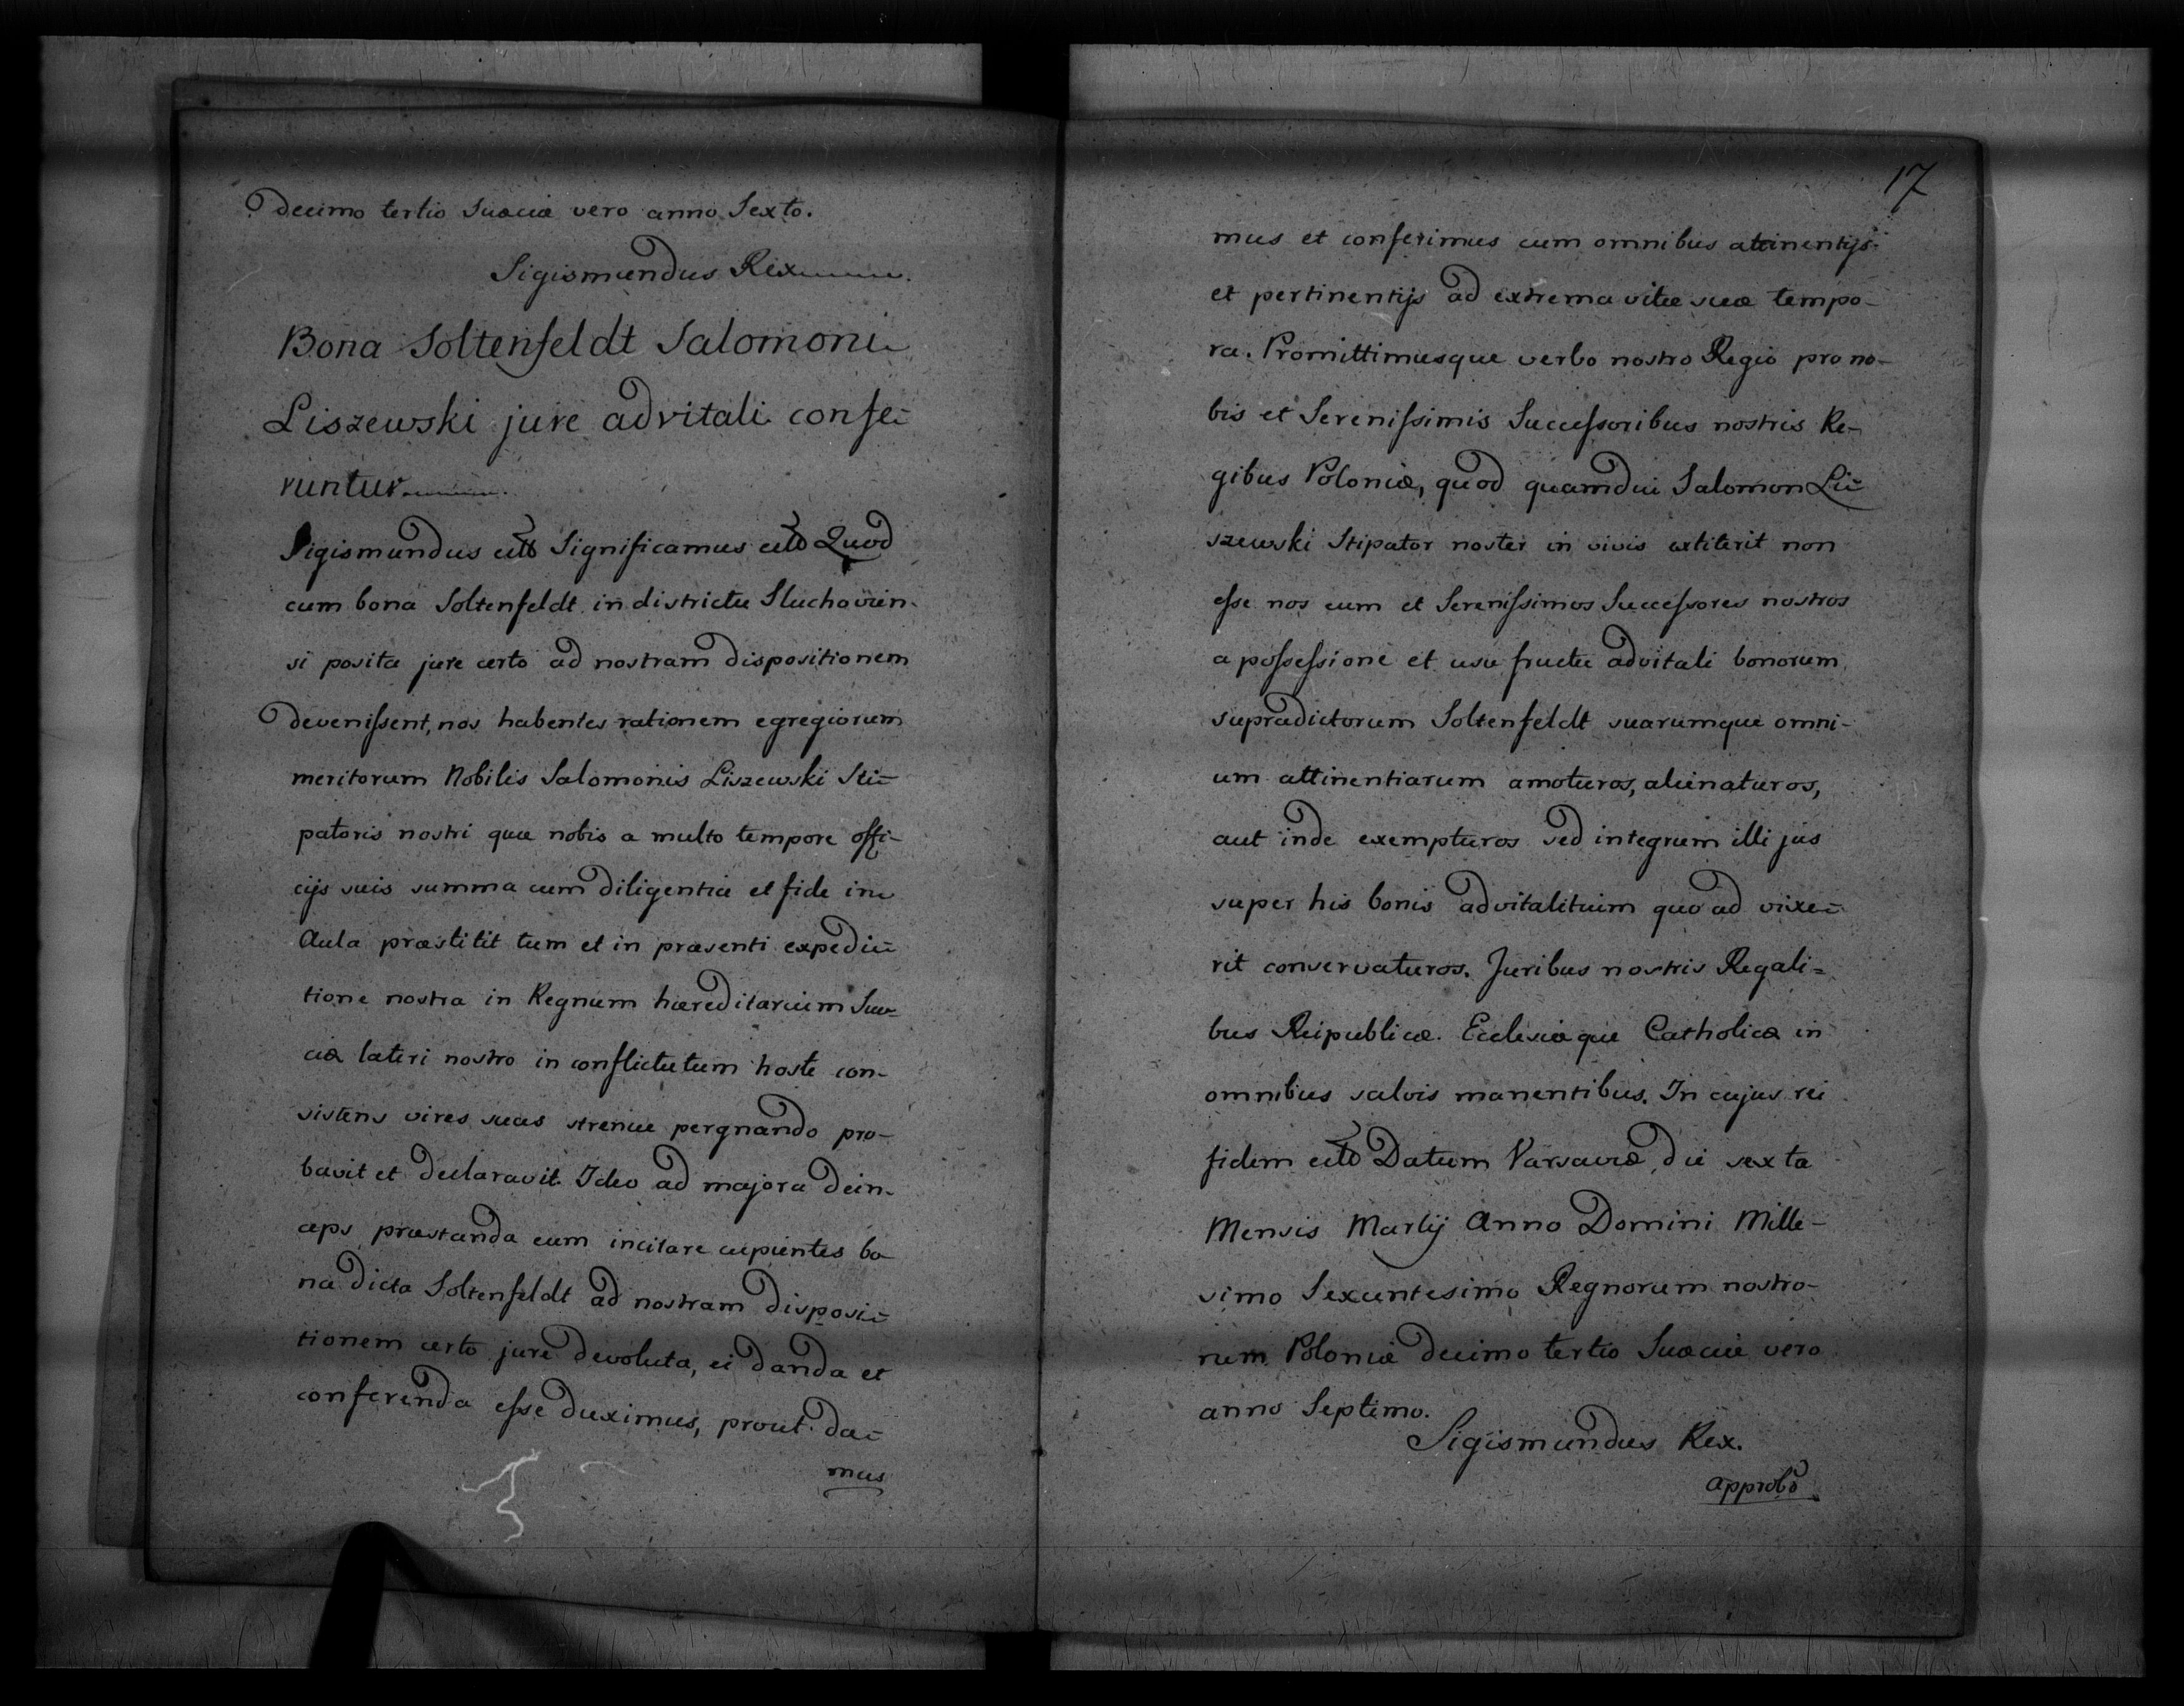 decimo tertio Suæciæ vero anno Sexto.
Sigismundus Rex
Bona Soltenfeldt Salomoni
Liszewski jure advitali confe-
runtur
Sigismundus etc Significamus etc Quod
cum bona Soltenfeldt in districtu Sluchovien-
si posita jure certo ad nostram dispositionem
devenissent, nos habentes rationem egregiorum
meritorum Nobilis Salomonis Liszewski Sti-
patoris nostri quæ nobis a multo tempore offi-
cijs suis summa cum diligentia et fide in
Aula præstitit tum et in præsenti expedi-
tione nostra in Regnum hæreditarium Suæ-
ciæ lateri nostro in conflictu tum hoste con-
sistens vires suas strenue pergnando pro-
bavit et declaravit. Ideo ad majora dein-
ceps præstanda eum incitare cupientes bo-
na dicta Soltenfeldt ad nostram disposi-
tionem certo jure devoluta, ei danda et
conferenda esse duximus, prout da-
mus
17
mus et conferimus cum omnibus attinentijs
et pertinentijs ad extrema vitæ suæ tempo-
ra. Promittimusque verbo nostro Regio pro no-
bis et Serenissimis Successoribus nostris Re-
gibus Poloniæ, quod quamdiu Salomon Li-
szewski Stipator noster in vivis extiterit non
esse nos eum et Serenissimos Successores nostros
a possessione et usu fructu advitali bonorum
supradictorum Soltenfeldt suarumque omni-
um attinentiarum amoturos, alienaturos,
aut inde exempturos sed integrum illi jus
super his bonis advitalitium quo ad vixe-
rit conservaturos. Juribus nostris Regali-
bus Reipublicæ. Ecclesiæque Catholicæ in
omnibus salvis manentibus. In cujus rei
fidem etc Datum Varsaviæ, die sexta
Mensis Martij Anno Domini Mille-
simo Sexcentesimo Regnorum nostro-
rum Poloniæ decimo tertio Suæciæ vero
anno Septimo.
Sigismundus Rex.
Approbo